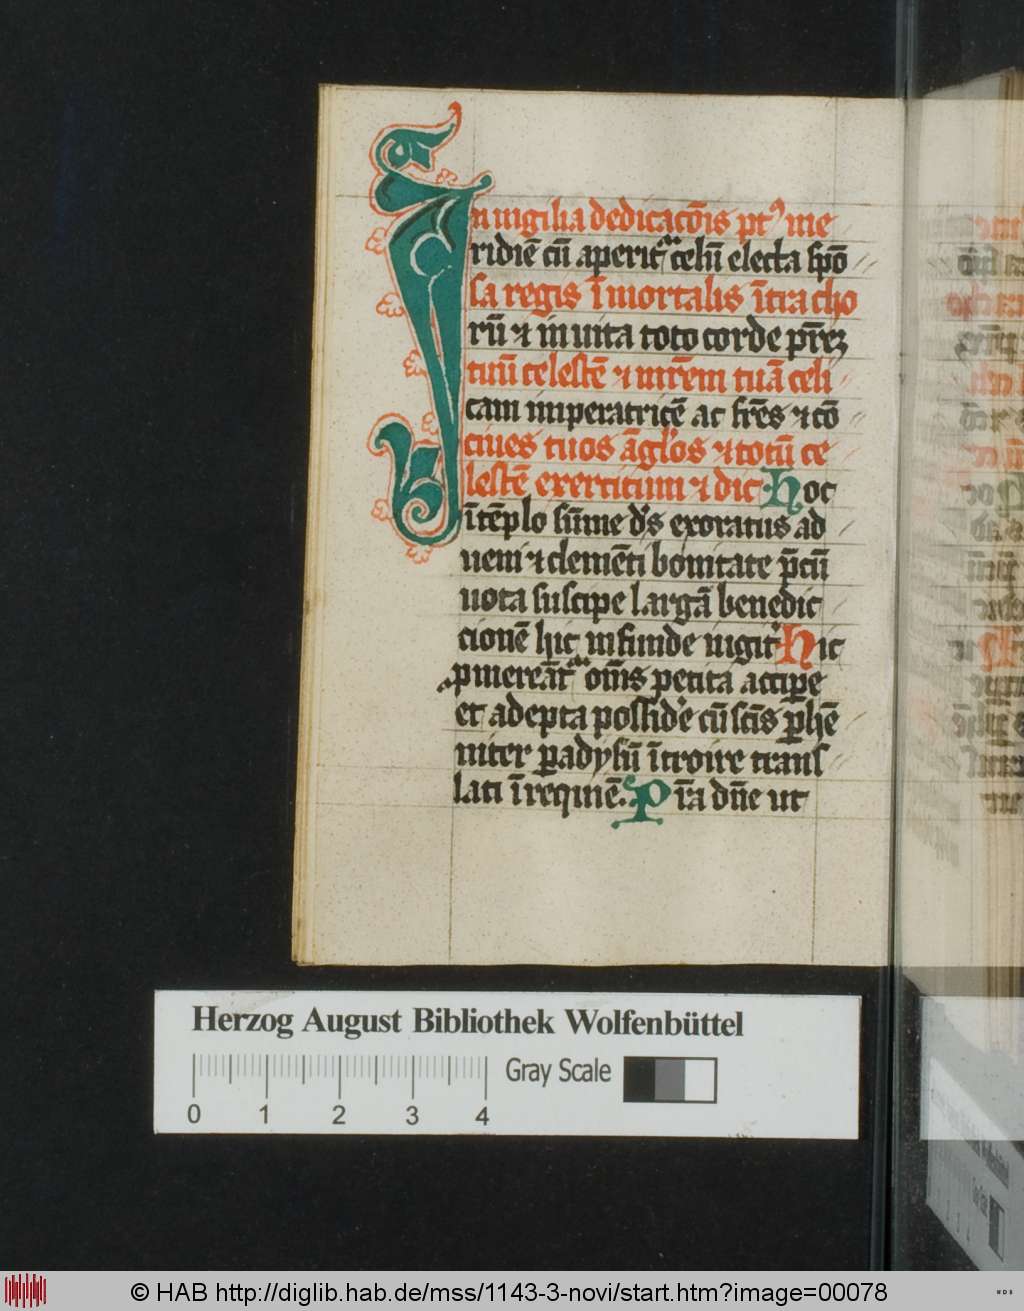 In uigilia dedicacōis pt᾽ me
ridiē cū aperitᷓ celū electa spō
sa regis īmortalis ītra cho
rū ⁊ inuita toto corde pr̄eꝫ
tuū celestē ⁊ mr̄em tuā celi
cam imperatricē ac fr̄es ⁊ cō
ciues tuos āglos ⁊ totū ce
lestē exercitum ⁊ dic Hoc
ī tēplo sūme ds̄ exoratus ad
ueni ⁊ clemēti bonitate p̄cū
uota suscipe largā benedic
cionē hic infunde iugitᷣ Hic
ꝓmereātᷓ om̄s petita accipꝫe
et adepta possidꝫe cū scīs ꝑhē
niter ꝑadysū ītroire trans
lati ī requiē. P r̄a dn̄e ut
Herzog August Bibliothek Wolfenbüttel
Gray Scale
0 1 2 3 4
© HAB http://diglib.hab.de/mss/1143-3-novi/start.htm?image=00078